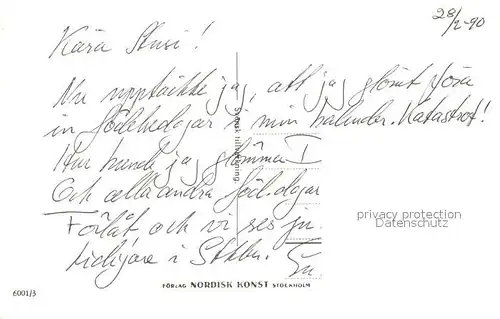 28/2-90
Kära Stusi!
Nu upptäckte jag, att jag glömt föra
in födelsedagar i min kalender. Katastrof!
Hur kunde jag glömma
Och alla andra föd.dagar
Förlåt och vi ses ju
tidigare i Sthlm.
privacy protection
Datenschutz
FÖRLAG NORDISK KONST STOCKHOLM
6001/3